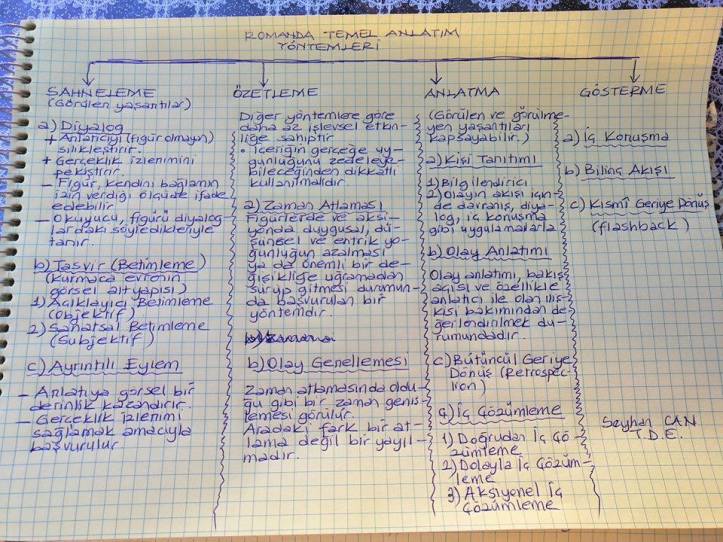 ROMANDA TEMEL ANLATIM
YÖNTEMLERİ
SAHNELEME
(Görülen yaşantılar)
a) Diyalog
+ Anlatıcıyı (figür olmayan)
silikleştirir.
+ Gerçeklik izlenimini
pekiştirir.
- Figür, kendini bağlamın
izin verdiği ölçüde ifade
edebilir.
- Okuyucu, figürü diyalog-
lardaki söyledikleriyle
tanır.
b) Tasvir (Betimleme)
(Kurmaca evrenin
görsel altyapısı)
1) Açıklayıcı Betimleme
(Objektif)
2) Sanatsal Betimleme
(Subjektif)
c) Ayrıntılı Eylem
- Anlatıya görsel bir
derinlik kazandırır.
- Gerçeklik izlenimi
sağlamak amacıyla
başvurulur.
ÖZETLEME
Diğer yöntemlere göre
daha az işlevsel etkin-
liğe sahiptir.
• İçeriğin gerçeğe uy-
gunluğunu zedeleye-
bileceğinden dikkatli
kullanılmalıdır.
a) Zaman Atlaması
Figürlerde ve aksi-
yonda duygusal, dü-
şünsel ve entrik yo-
ğunluğun azalması
ya da önemli bir de-
ğişikliğe uğramadan
sürüp gitmesi durumun-
da başvurulan bir
yöntemdir.
b) Olay Genellemesi
Zaman atlamasında oldu-
ğu gibi bir zaman geniş-
lemesi görülür.
Aradaki fark bir at-
lama değil bir yayıl-
madır.
ANLATMA
(Görülen ve görülme-
yen yaşantıları
kapsayabilir.)
a) Kişi Tanıtımı
1) Bilgilendirici
2) Olayın akışı için-
de davranış, diya-
log, iç konuşma
gibi uygulamalarla
b) Olay Anlatımı
Olay anlatımı, bakış
açısı ve özellikle
anlatıcı ile olan iliş-
kisi bakımından de-
ğerlendirilmek du-
rumundadır.
c) Bütüncül Geriye
Dönüş (Retrospec-
tion)
ç) İç Çözümleme
1) Doğrudan İç Çö-
zümleme
2) Dolaylı İç Çözüm-
leme
3) Aksiyonel İç
Çözümleme
GÖSTERME
a) İç Konuşma
b) Bilinç Akışı
c) Kısmî Geriye Dönüş
(flashback)
Seyhan CAN
T.D.E.